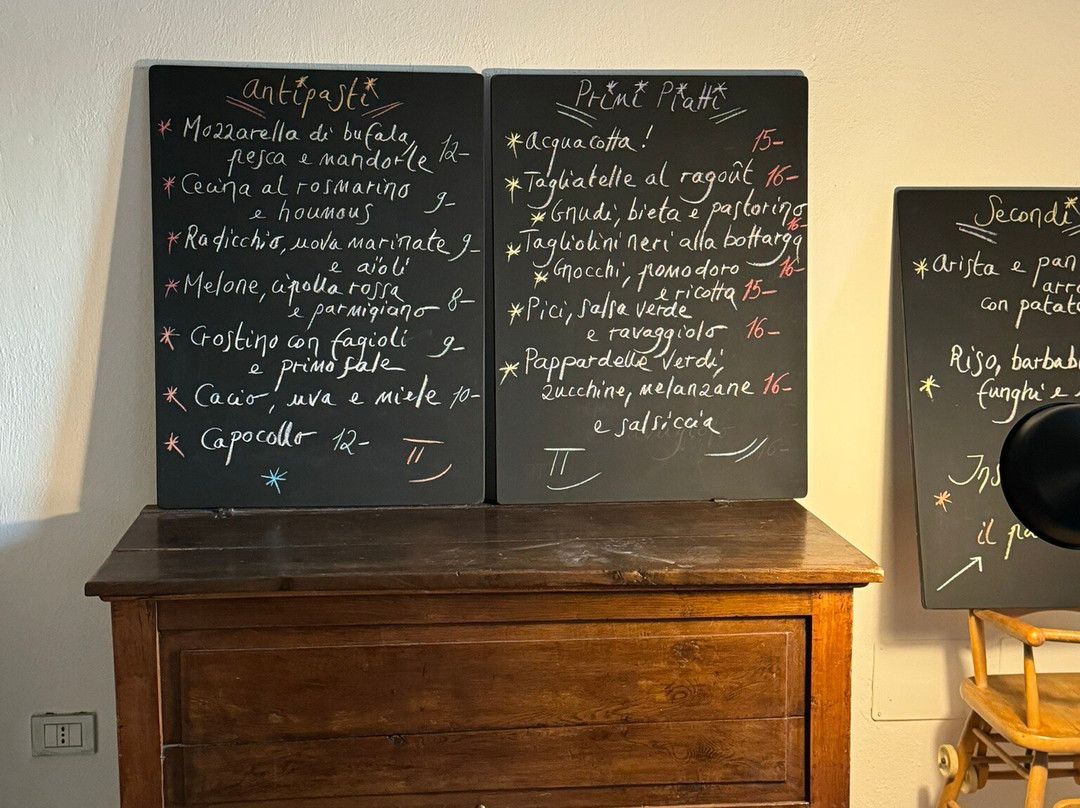 Antipasti
* Mozzarella di bufala,
pesca e mandorle 12-
* Cecina al rosmarino
e houmous 9-
* Radicchio, uova marinate 9-
e aïoli
* Melone, cipolla rossa
e parmigiano 8-
* Crostino con fagioli 9-
e primo sale
* Cacio, uva e miele 10-
* Capocollo 12-
Primi Piatti
* Acquacotta! 15-
* Tagliatelle al ragoût 16-
* Gnudi, bieta e pastorino
16-
* Tagliolini neri alla bottarga
* Gnocchi, pomodoro 16-
e ricotta 15-
* Pici, salsa verde
e ravaggiolo 16-
* Pappardelle verdi,
zucchine, melanzane 16-
e salsiccia
Secondi
* Arista e pan
con patat
Riso, barbab
* funghi e
il pa